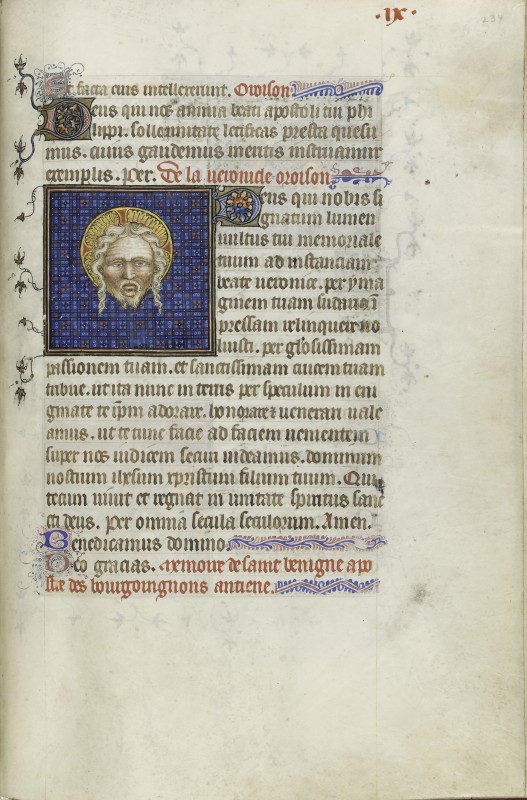 ·IX·
234
Et facta eius intellexerunt. Oroison
Deus qui nos annua beati apostoli tui phi
lippi. sollempnitate letificas presta quesu
mus. cuius gaudemus meritis instruamur
exemplis. Per. De la veronicle oroison
Deus qui nobis si
gnatum lumen
vultus tui memoriale
tuum ad instanciam
beate veronice. per yma
ginem tuam sudario ī
pressam relinquere vo
luisti. per gloriosissimam
passionem tuam. et sanctissimam crucem tuam
tribue. ut ita nunc in terris per speculum in eni
gmate te ip̄m adorare. honorare ⁊ venerari vale
amus. ut te tunc facie ad faciem venientem
super nos iudicem securi videamus. dominum
nostrum ihesum xpristum filium tuum. Qui
tecum vivit et regnat in unitate spiritus sanc
ti deus. Per omnia secula seculorum. Amen.
Benedicamus domino
Deo gracias. memoire de saint benigne apo
stre des bourgoingnons antiene.